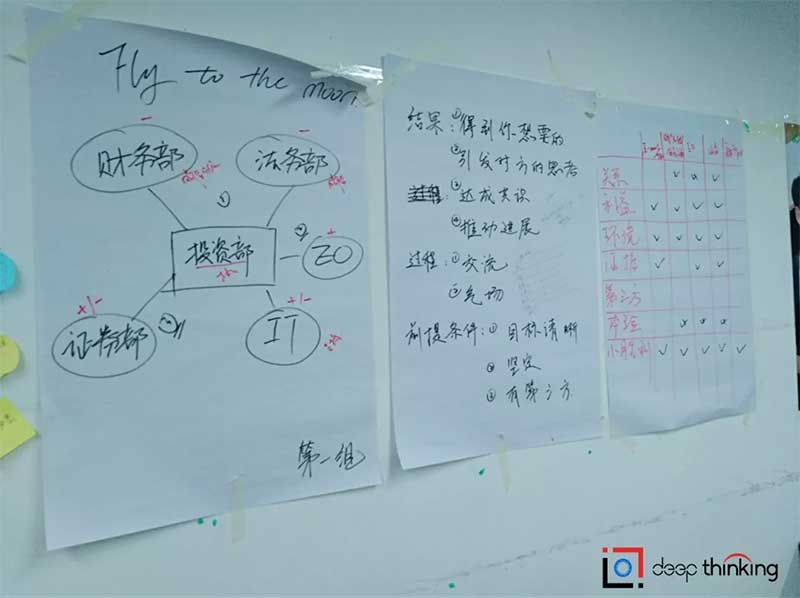 Fly to the moon
-
-
财务部
法务部
①
投资部
②
+
ZO
+/-
+/-
证券部
IT
第一组
结果：①得到你想要的
②引发对方的思考
③达成共识
④推动进展
过程：①交流
②气场
前提条件：①目标清晰
②坚定
③有第三方
关系
利益
环境
证据
第三方
体验
小胜利
deep thinking